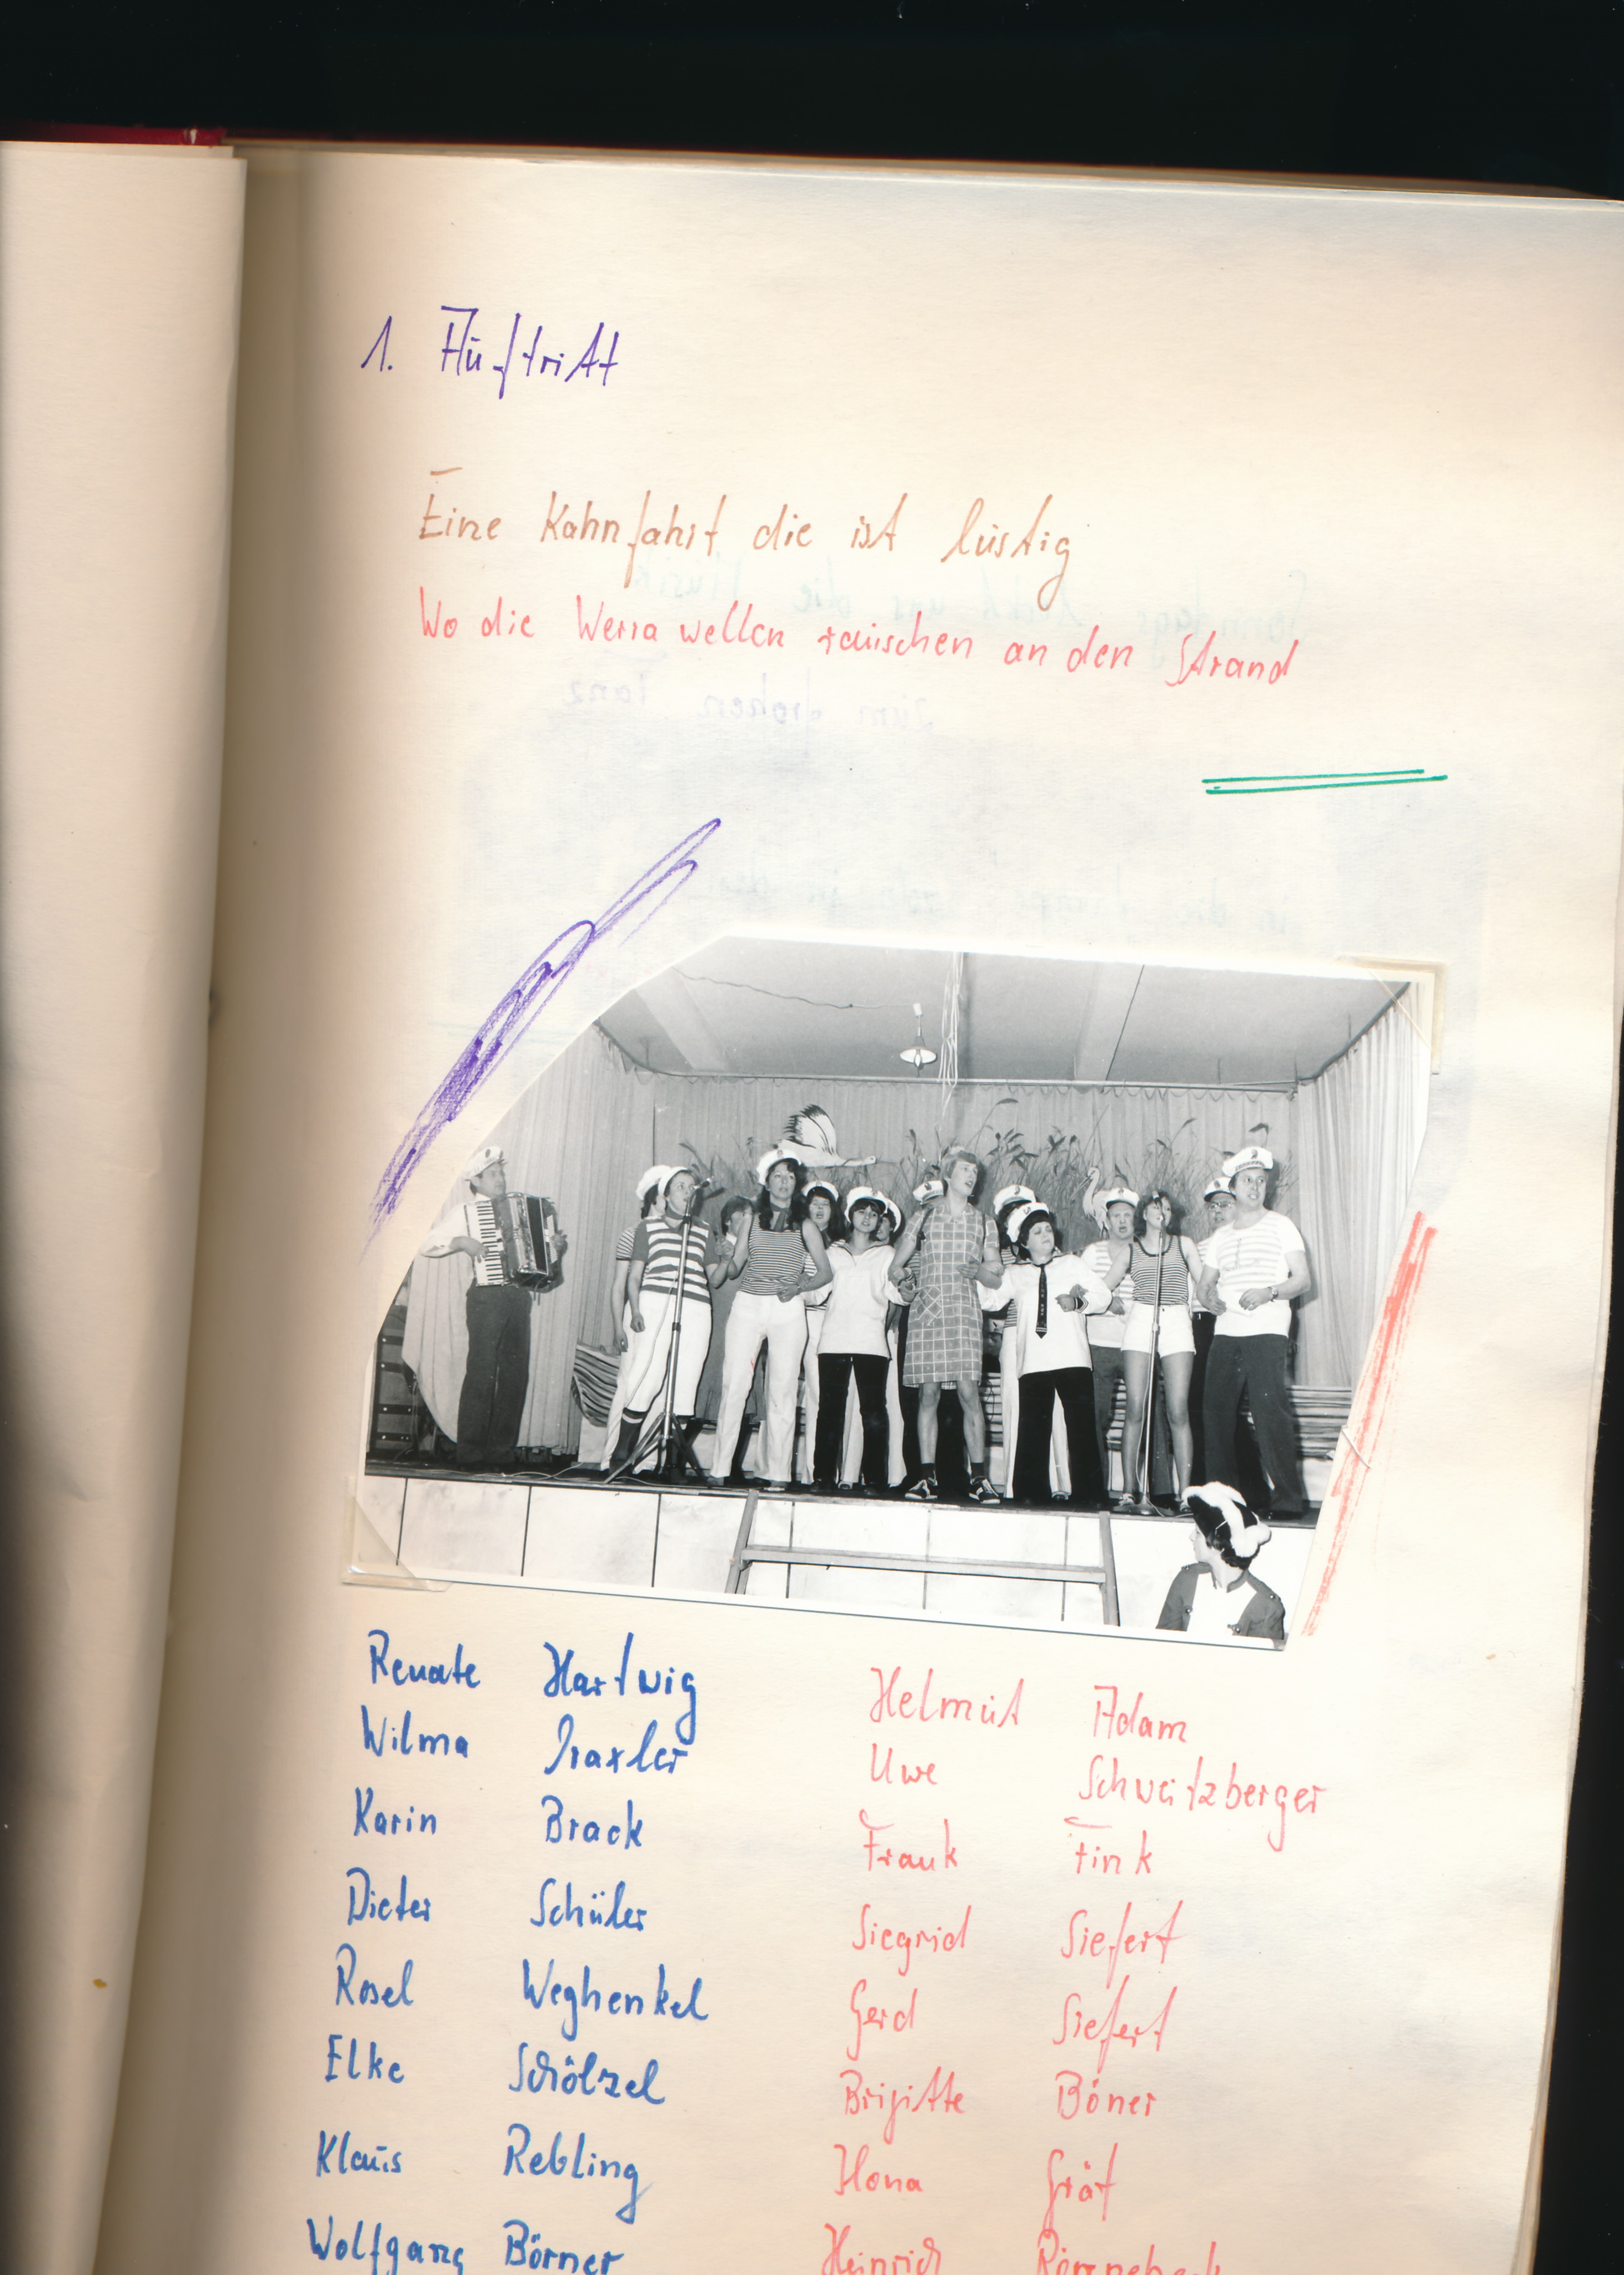 1. Auftritt
Eine Kahnfahrt die ist lustig
Wo die Werrawellen rauschen an den Strand
Renate Hartwig
Wilma Draxler
Karin Brack
Dieter Schüler
Rosel Weghenkel
Elke Schölzel
Klaus Rebling
Wolfgang Börner
Helmut Adam
Uwe Schweitzberger
Frank Fink
Siegrid Siefert
Gerd Siefert
Brigitte Böner
Ilona Gräf
Heinrich